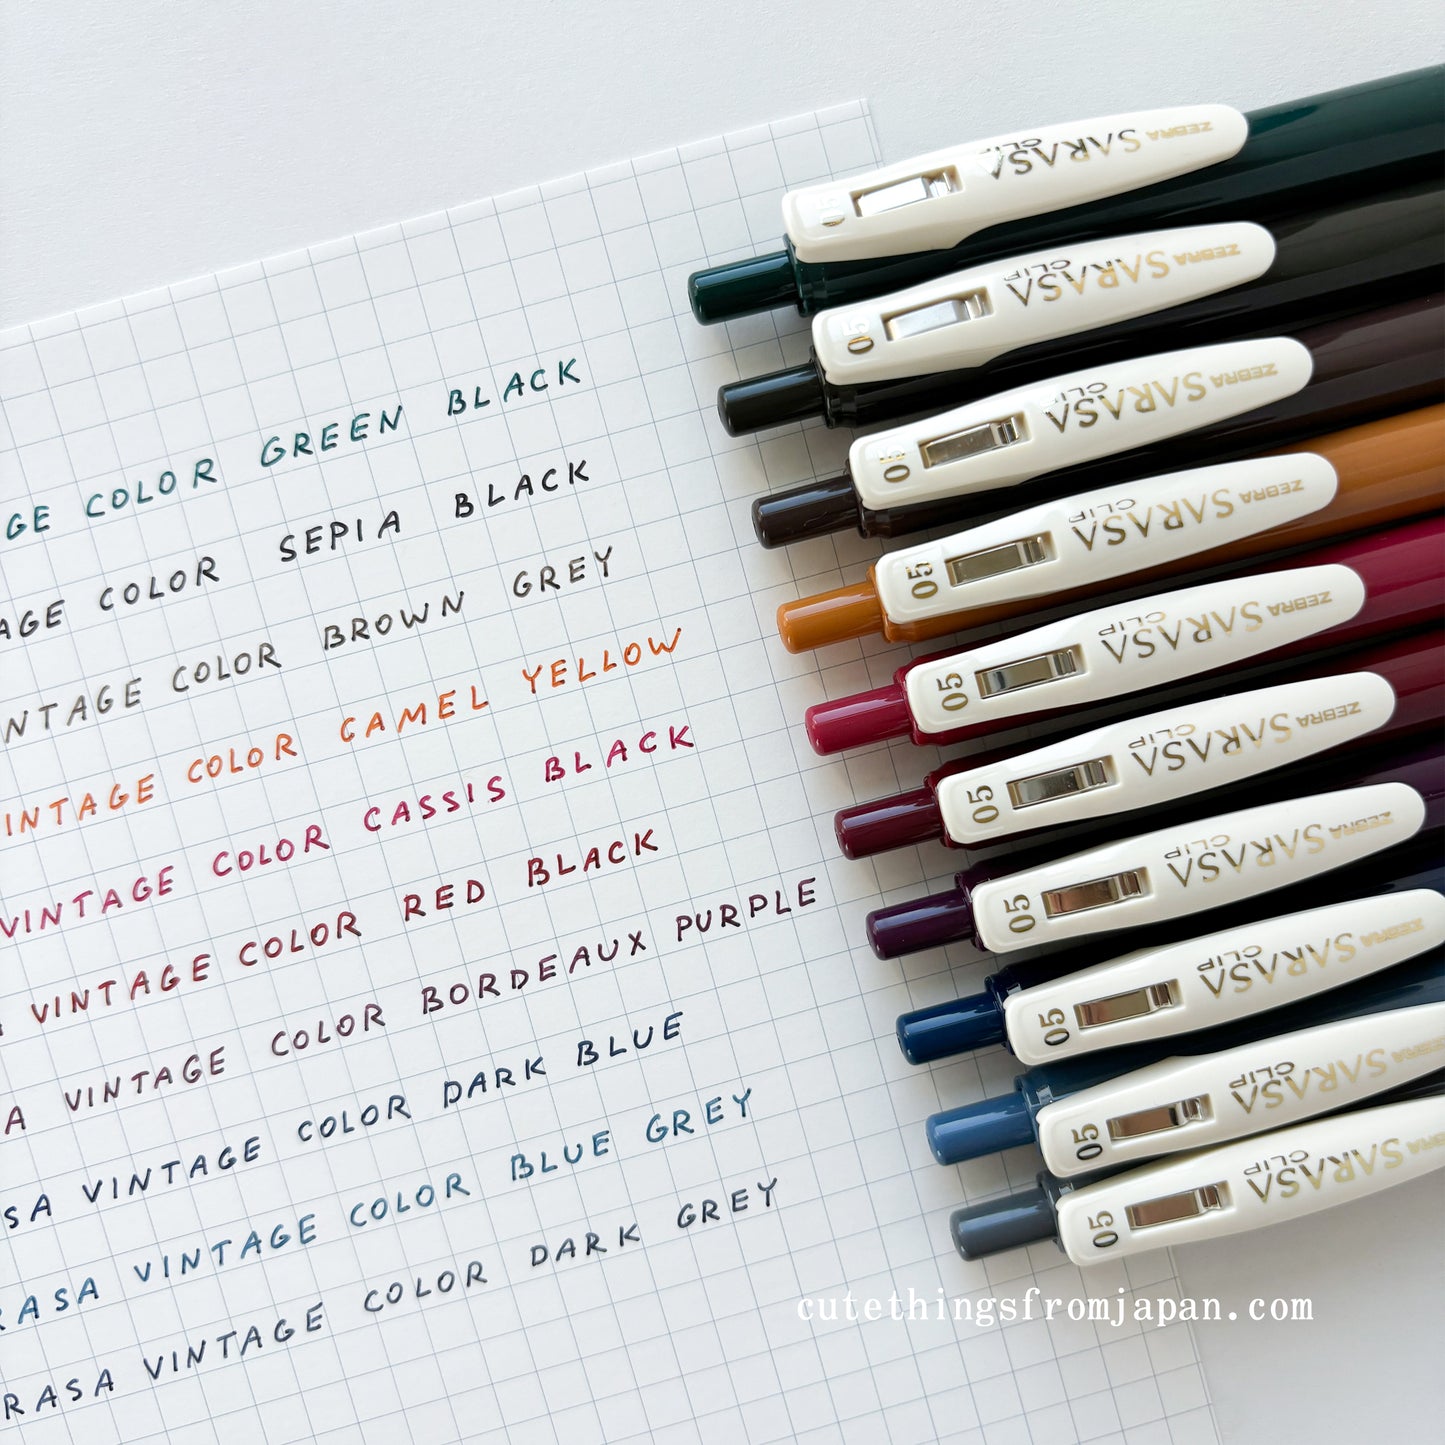 GE COLOR GREEN BLACK
AGE COLOR SEPIA BLACK
NTAGE COLOR BROWN GREY
INTAGE COLOR CAMEL YELLOW
VINTAGE COLOR CASSIS BLACK
A VINTAGE COLOR RED BLACK
A VINTAGE COLOR BORDEAUX PURPLE
SA VINTAGE COLOR DARK BLUE
RASA VINTAGE COLOR BLUE GREY
RASA VINTAGE COLOR DARK GREY
05 SARASA CLIP ZEBRA
05 SARASA CLIP ZEBRA
05 SARASA CLIP ZEBRA
05 SARASA CLIP ZEBRA
05 SARASA CLIP ZEBRA
05 SARASA CLIP ZEBRA
05 SARASA CLIP ZEBRA
05 SARASA CLIP ZEBRA
05 SARASA CLIP ZEBRA
05 SARASA CLIP ZEBRA
cutethingsfromjapan.com